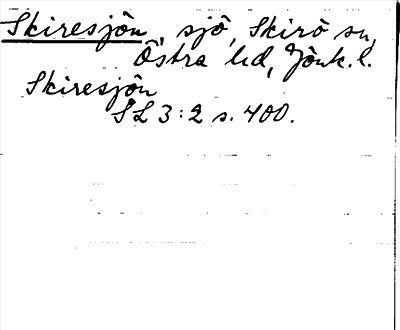 Skiresjön, sjö, Skirö sn,
Östra hd, Jönk. l.
Skiresjön
SL 3:2 s. 400.